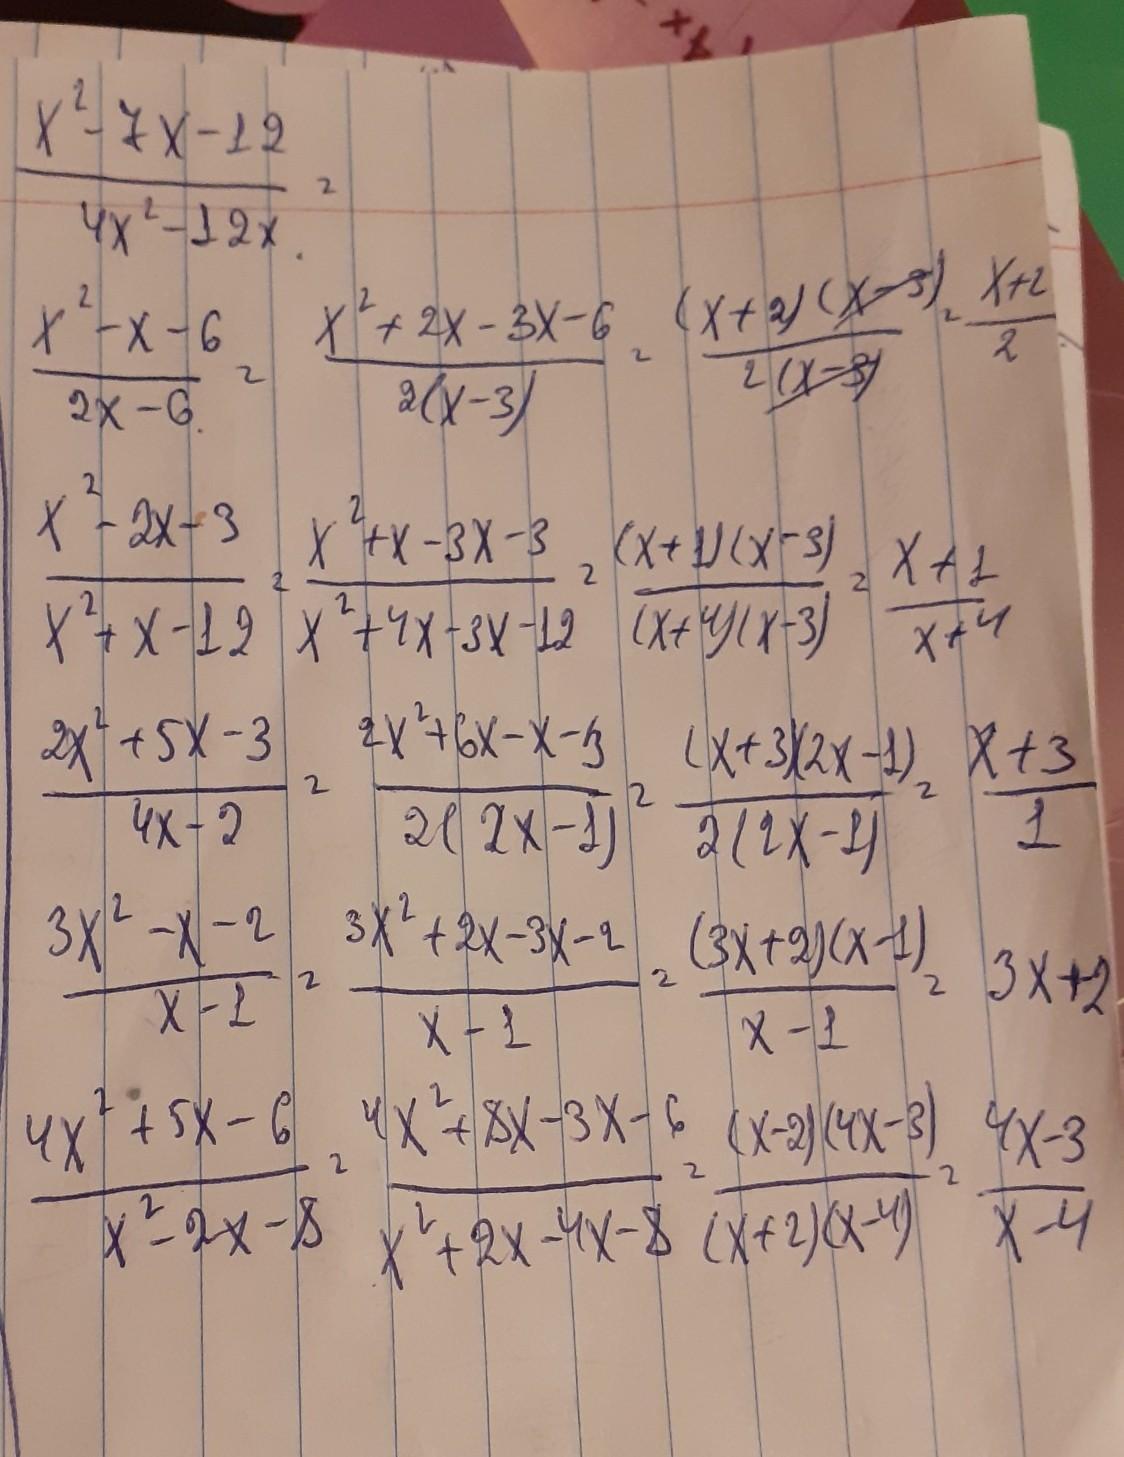 (x²-7x-12)/(4x²-12x) =
(x²-x-6)/(2x-6) = (x²+2x-3x-6)/(2(x-3)) = ((x+2)(x-3))/(2(x-3)) = (x+2)/2
(x²-2x-3)/(x²+x-12) = (x²+x-3x-3)/(x²+4x-3x-12) = ((x+1)(x-3))/((x+4)(x-3)) = (x+1)/(x+4)
(2x²+5x-3)/(4x-2) = (2x²+6x-x-3)/(2(2x-1)) = ((x+3)(2x-1))/(2(2x-1)) = (x+3)/1
(3x²-x-2)/(x-1) = (3x²+2x-3x-2)/(x-1) = ((3x+2)(x-1))/(x-1) = 3x+2
(4x²+5x-6)/(x²-2x-8) = (4x²+8x-3x-6)/(x²+2x-4x-8) = ((x-2)(4x-3))/((x+2)(x-4)) = (4x-3)/(x-4)